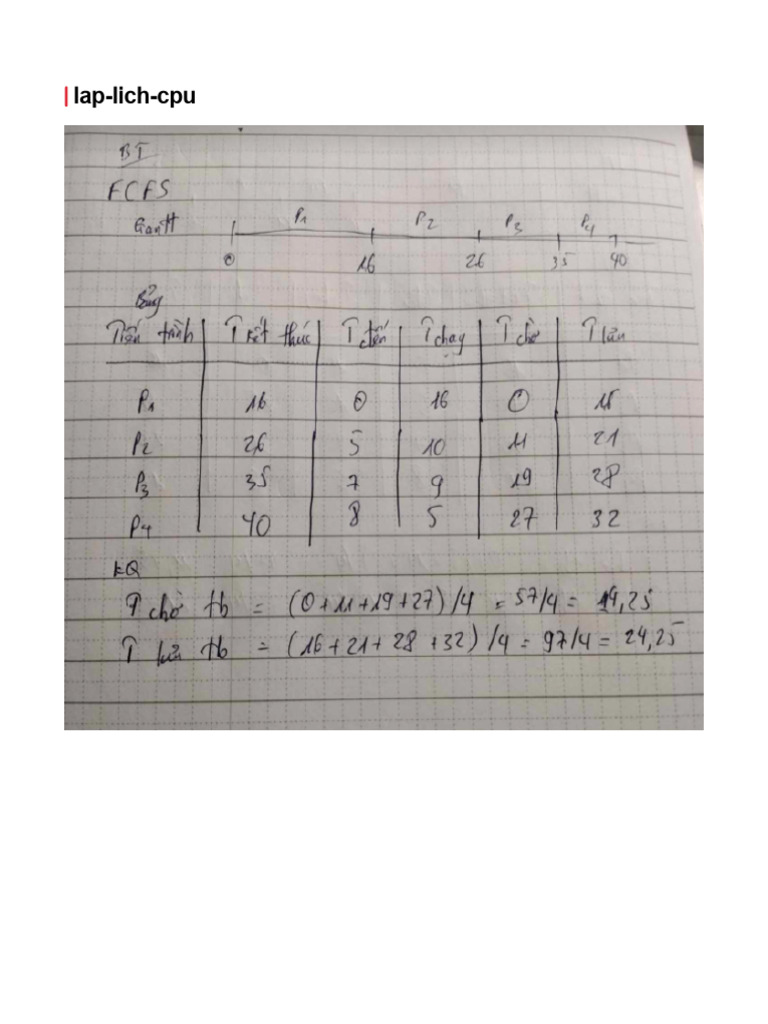 lap-lich-cpu
BT
FCFS
Gantt P1 P2 P3 P4
0 16 26 35 40
Bảng
Tiến trình T kết thúc T đến T chạy T chờ T lưu
P1 16 0 16 0 15
P2 26 5 10 11 21
P3 35 7 9 19 28
P4 40 8 5 27 32
KQ
T chờ tb = (0+11+19+27)/4 = 57/4 = 14,25
T lưu tb = (16+21+28+32)/4 = 97/4 = 24,25